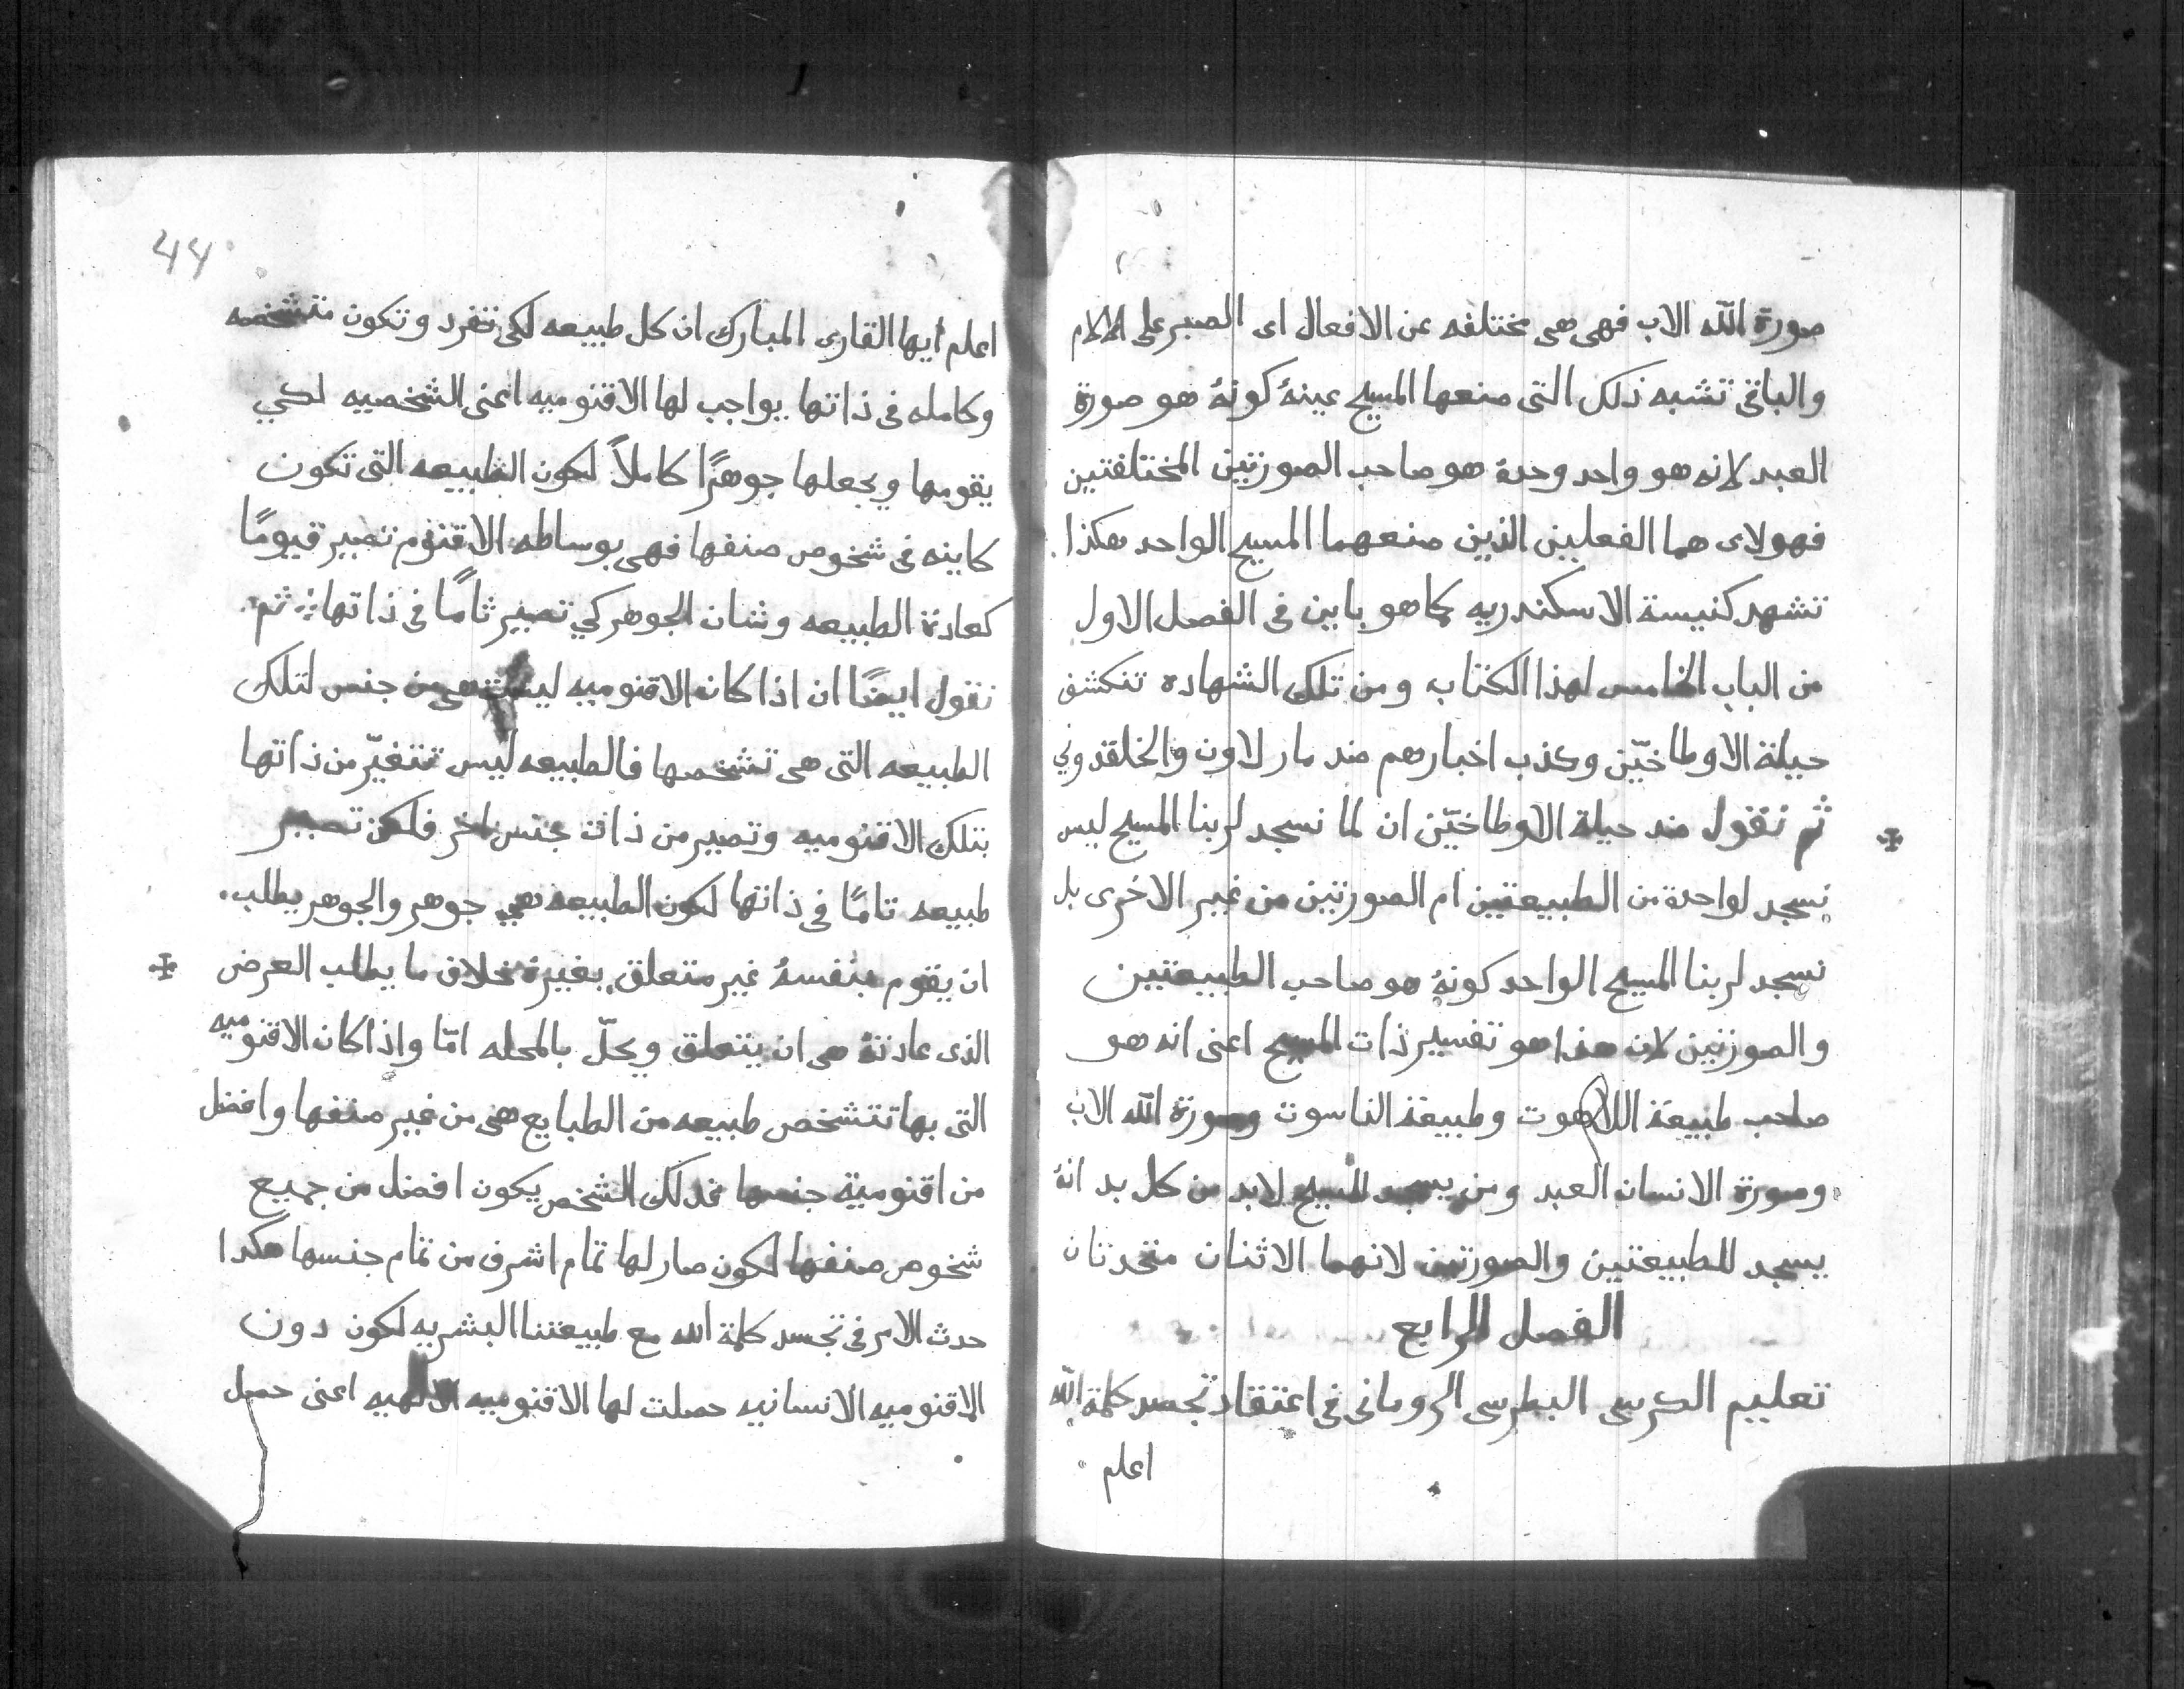 صورة الله الاب فهى هى مختلفه عن الافعال اى الصبر على الالام
والباقى تشبه ذلك التى صنعها المسيح عينهُ كونهُ هو صورة
العبد لانه هو واحد وحدهُ هو صاحب الصورتين المختلفتين
فهولاى هما الفعلين الذين صنعهما المسيح الواحد هكذا
تشهد كنيسة الاسكندريه كما هو باين فى الفصل الاول
من الباب الخامس لهذا الكتاب ومن تلك الشهاده تنكشف
حيلة الاوطاخيّن وكذب اخبارهم ضد مار لاون والخلقدوني
ثم نقول ضد حيلة الاوطاخيّن ان لما نسجد لربنا المسيح ليس
نسجد لواحدة من الطبيعتين ام الصورتين من غير الاخرى بل
نسجد لربنا المسيح الواحد كونهُ هو صاحب الطبيعتين
والصورتين لان هذا هو تفسير ذات المسيح اعنى انه هو
صاحب طبيعة اللاهوت وطبيعة الناسوت وصورة الله الاب
وصورة الانسان العبد ومن يسجد للمسيح لابد من كل بد انهُ
يسجد للطبيعتين والصورتين لانهما الاثنان متحدتان
الفصل الرابع
تعليم الكرسى البطرسى الرومانى فى اعتقاد تجسد كلمة الله
اعلم
44
اعلم ايها القارى المبارك ان كل طبيعه لكى تنفرد وتكون متشخصه
وكامله فى ذاتها يواجب لها الاقنوميه اعنى الشخصيه لكي
يقومها ويجعلها جوهرًا كاملاً لكون الطبيعه التى تكون
كاينه فى شخوص صنفها فهى بوساطه الاقنوم تصير قيومًا
كعادة الطبيعه وشان الجوهر كي تصير تامًا فى ذاتها ثم
نقول ايضًا ان اذا كانه الاقنوميه ليست هى من جنس لتلك
الطبيعه التى هى تشخصها فالطبيعه ليس تتغيّر من ذاتها
بتلك الاقنوميه وتصير من ذات بجنس اخر فلكن تصير
طبيعه تامًا فى ذاتها لكون الطبيعه هي جوهر والجوهر يطلب
ان يقوم بنفسهُ غير متعلق بغيرهُ بخلاف ما يطلب العرض
الذى عادتهُ هى ان يتعلق ويحلّ بالمحله امّا واذا كان الاقنوميه
التى بها تتشخص طبيعه من الطبايع هى من غير صنفها وافضل
من اقنومية جنسها فذلك الشخص يكون افضل من جميع
شخوص صنفها لكون صار لها تمام اشرف من تمام جنسها هكدا
حدث الامر فى تجسد كلمة الله مع طبيعتنا البشريه لكون دون
الاقنوميه الانسانيه حصلت لها الاقنوميه الالهيه اعنى حصل